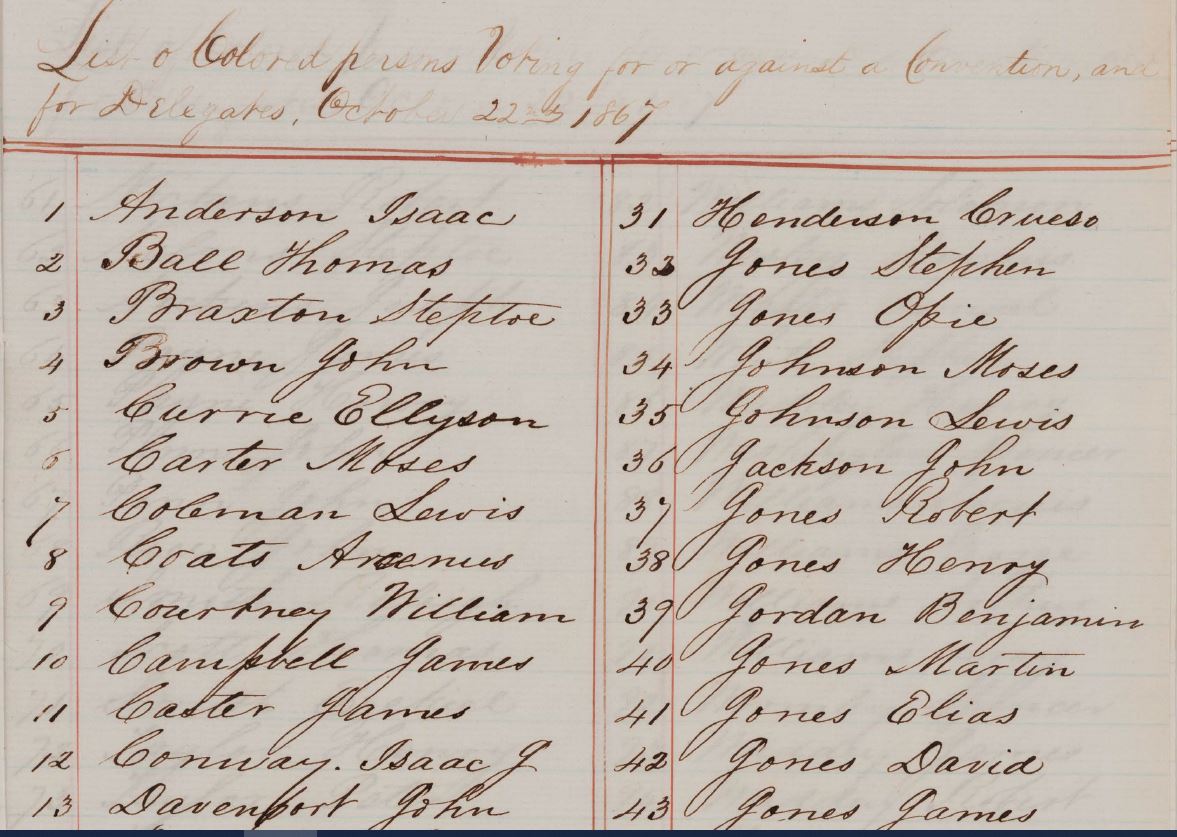 List of Colored persons Voting for or against a Convention, and
for Delegates, October 22nd 1867
1 Anderson Isaac
2 Ball Thomas
3 Braxton Steptoe
4 Brown John
5 Currie Ellyson
6 Carter Moses
7 Coleman Lewis
8 Coats Arcenus
9 Courtney William
10 Campbell James
11 Caster James
12 Conway. Isaac J
13 Davenport John
31 Henderson Crueso
32 Jones Stephen
33 Jones Opie
34 Johnson Moses
35 Johnson Lewis
36 Jackson John
37 Jones Robert
38 Jones Henry
39 Jordan Benjamin
40 Jones Martin
41 Jones Elias
42 Jones David
43 Jones James